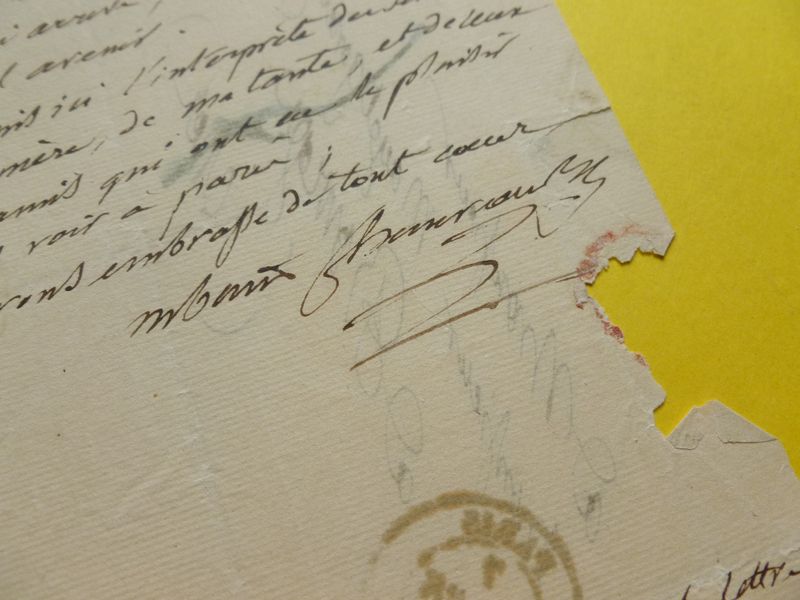 i arrive,
l'avenir.
mis ici l'interprète de
mère, de ma tante, et de leur
amis qui ont eu le plaisir
voir à paris ;
vous embrasse de tout cœur
PARIS
lettre